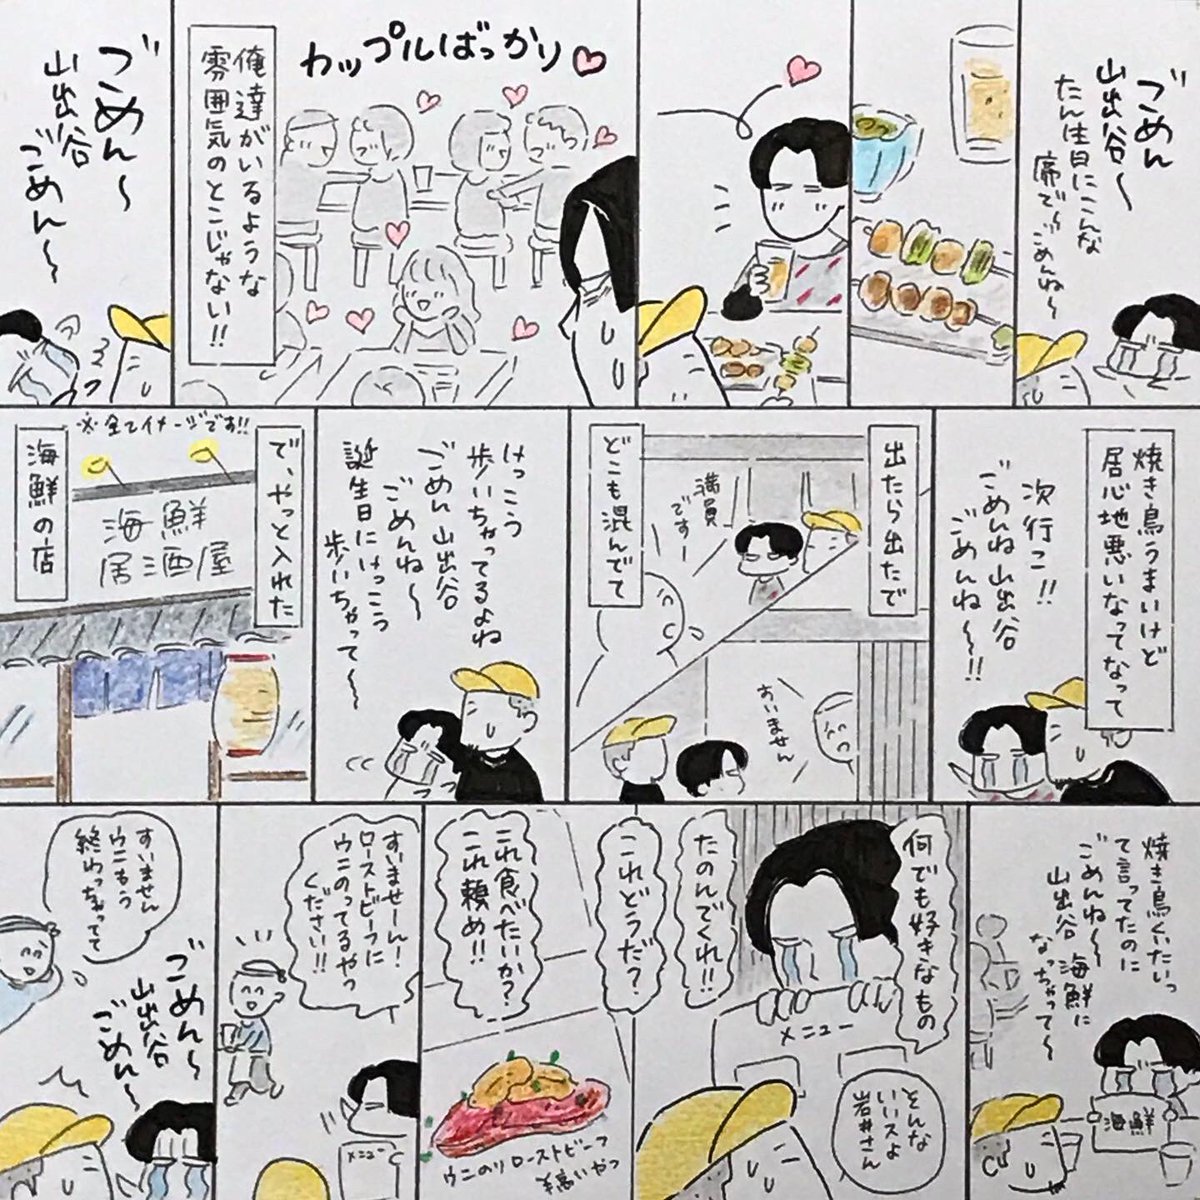 ごめん
山出谷〜
たん生日にこんな
席で〜ごめんね〜
カップルばっかり
俺達がいるような
雰囲気のとこじゃない!!
ごめん〜
山出谷
ごめん〜
焼き鳥うまいけど
居心地悪いなってなって
次行こ!!
ごめんね山出谷
ごめんね〜!!
出たら出たで
満員
ですー
どこも混んでて
すいません
けっこう
歩いちゃってるよね
ごめん山出谷
ごめんね〜
誕生日にけっこう
歩いちゃって〜
で、やっと入れた
※全てイメージです!!
海鮮
居酒屋
海鮮の店
焼き鳥くいたいっ
て言ってたのに
ごめんね〜
山出谷 海鮮に
なっちゃって〜
海鮮
何でも好きなもの
たのんでくれ!!
メニュー
そんな
いいスよ
岩井さん
これどうだ?
これ食べたいか?
これ頼め!!
ウニのりローストビーフ
¥高いやつ
すいませーん!
ローストビーフに
ウニのってるやつ
ください!!
メニュー
すいません
ウニもう
終わっちゃってて
ごめん〜
山出谷
ごめん〜